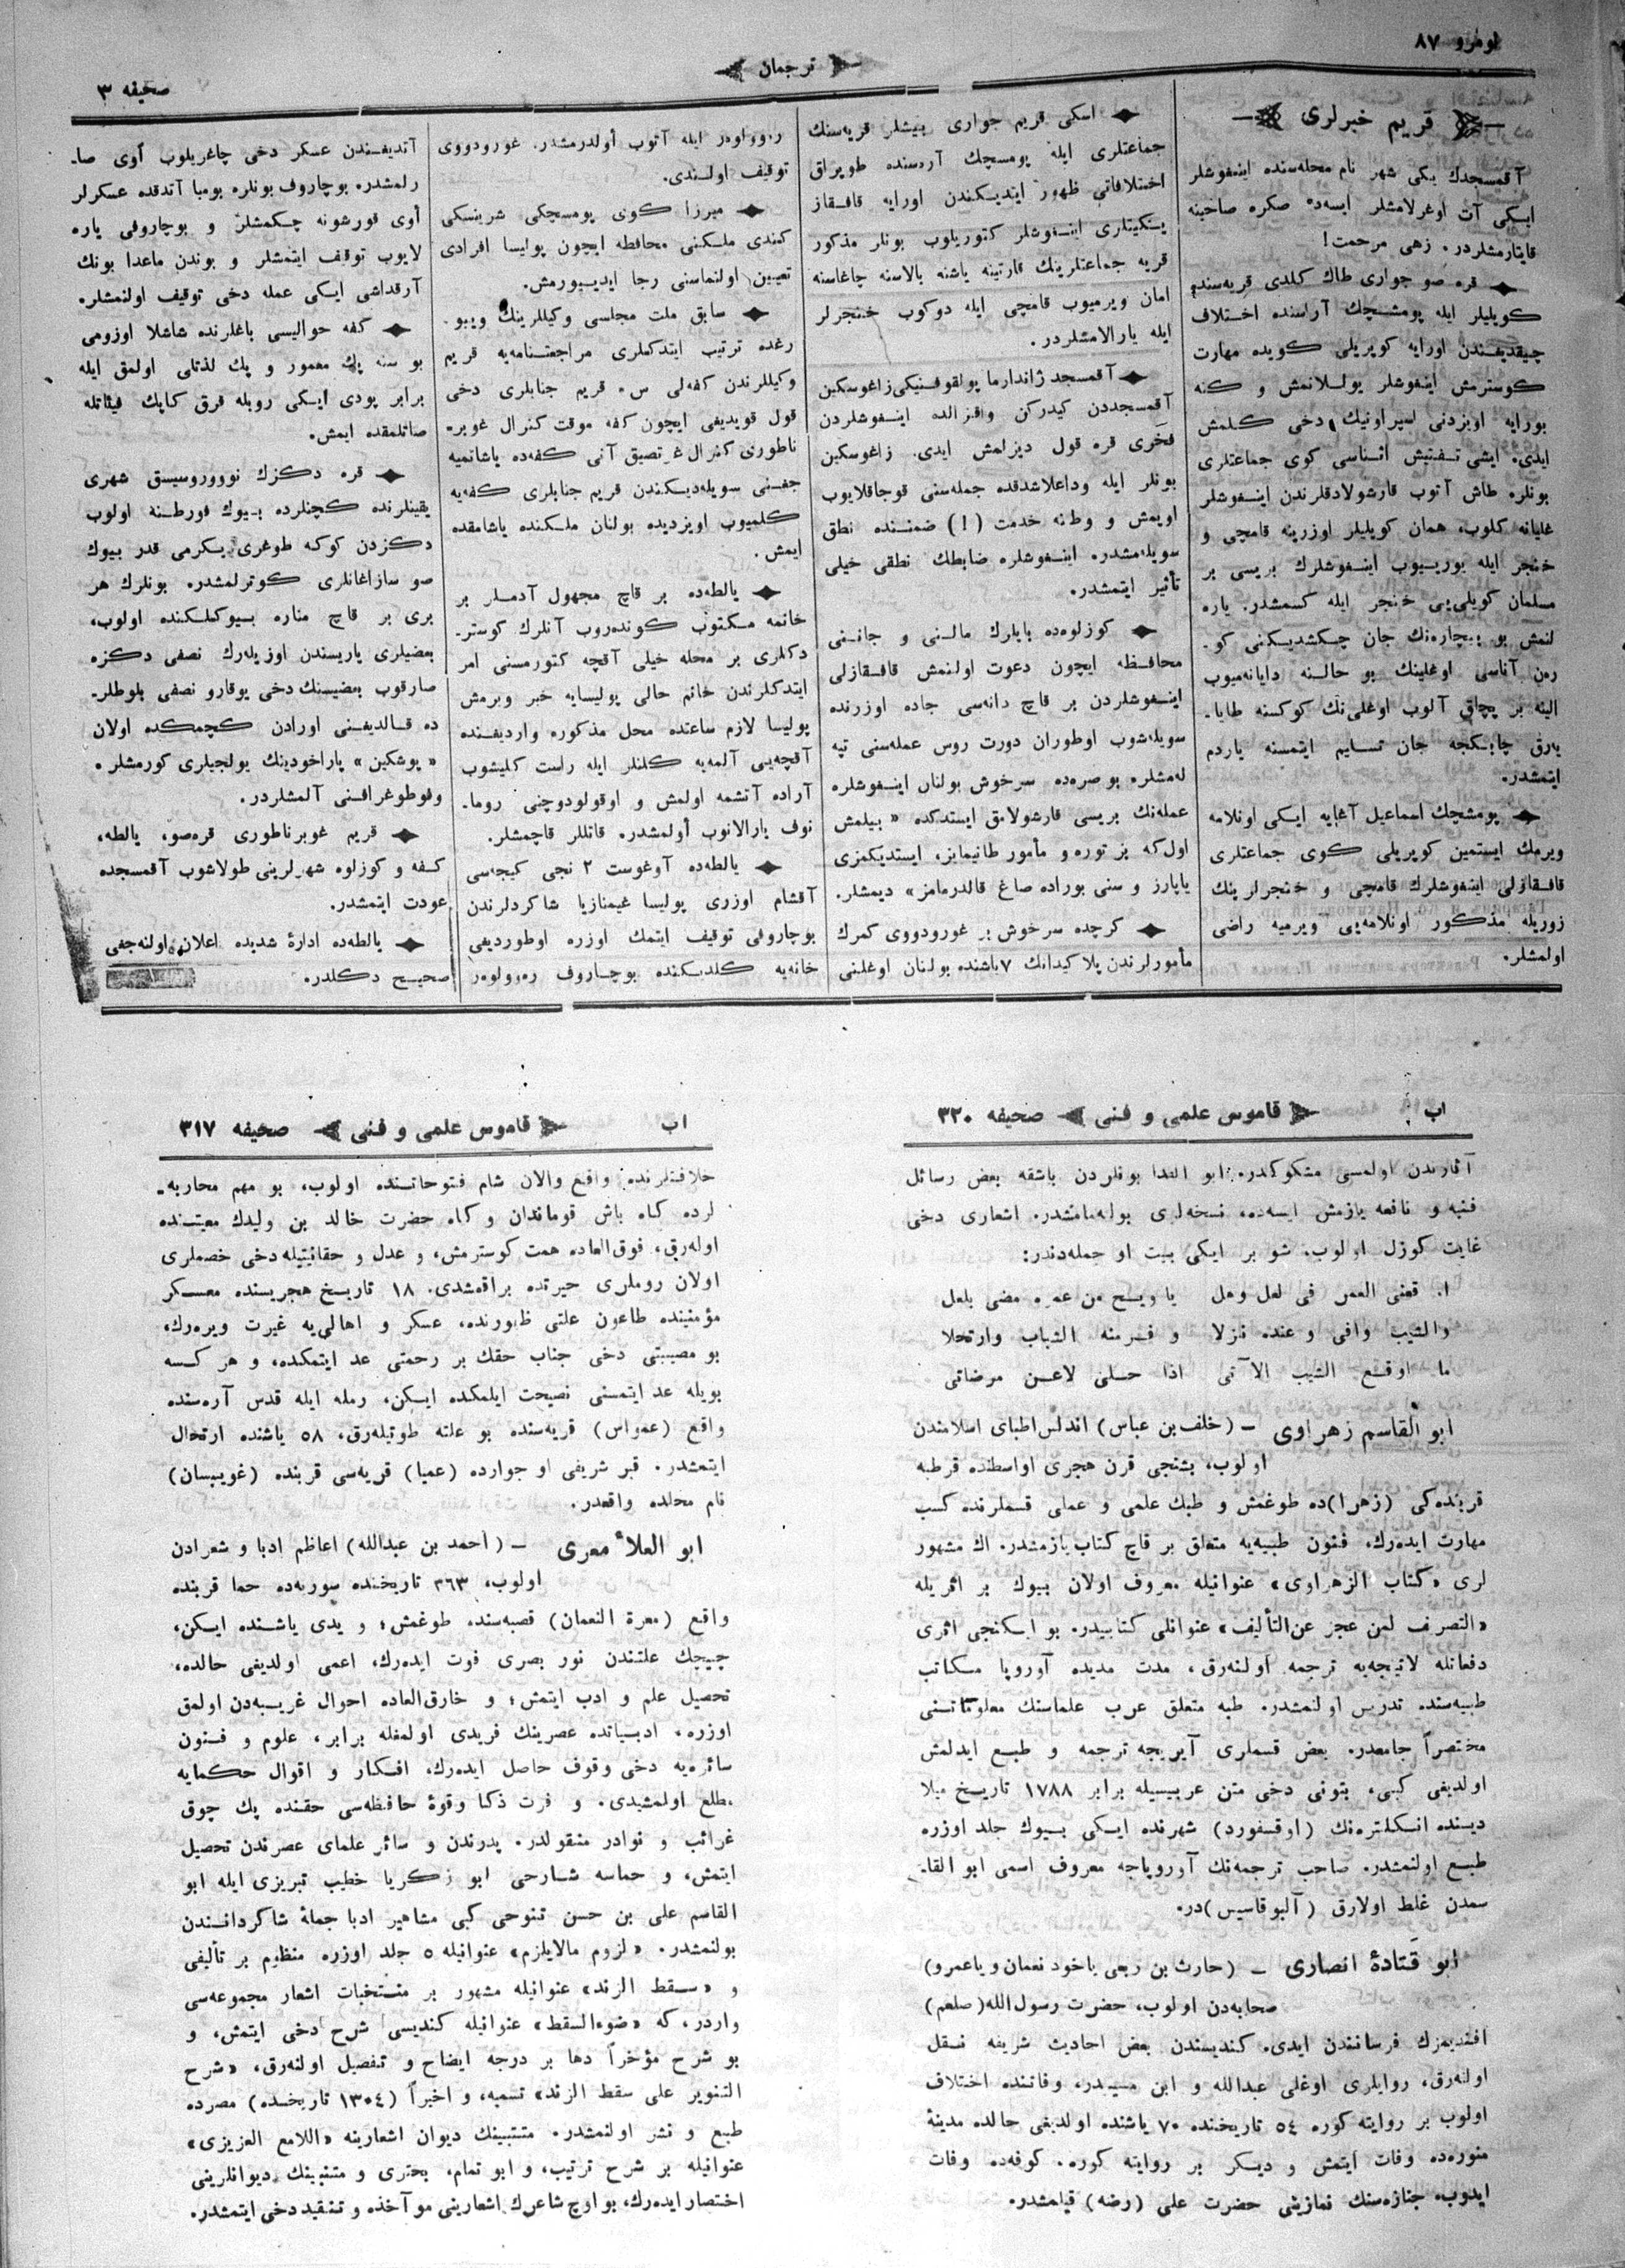 نومرو ٨٧
ترجمان
صحيفه ٣
قريم خبرلری
آقمسجدك يكی شهر نام محله‌سنده اينغوشلر
ايكی آت اوغرلامشلر ايسه‌ده صكره صاحبنه
قايتارمشلردر. زهی مرحمت!
قره صو جواری طاك كلدی قريه‌سنده
كويليلر ايله پومشچك آراسنده اختلاف
چيقديغندن اورايه كوپريلی كويده مهارت
كوسترمش اينغوشلر يوللانمش و كنه
بورايه اويزدنی اسپراونيك دخی كلمش
ايدی. ايشی تفتيش اثناسی كوی جماعتلری
بونلره طاش آتوب قارشولادقلرندن اينغوشلر
غليانه كلوب، همان كويليلر اوزرينه قامچی و
خنجر ايله يوريوب اينغوشلرك بريسی بر
مسلمان كويلی‌يی خنجر ايله كسمشدر. ياره
لنمش بو بيچاره‌نك جان چكشديكنی كو-
ره‌ن آناسی اوغلينك بو حالنه دايانه‌ميوب
الينه بر پچاق آلوب اوغلی‌نك كوكسنه طايا-
يه‌رق چابكجه جان تسليم ايتمسنه ياردم
ايتمشدر.
پومشچك اسماعيل آغايه ايكی اونلامه
ويرمك ايستمين كوپريلی كوی جماعتلری
قافقازلی اينغوشلرك قامچی و خنجرلرينك
زوريله مذكور اونلامه‌يی ويرميه راضی
اولمشلر.
اسكی قريم جواری بيشلر قريه‌سنك
جماعتلری ايله پومسچك آره‌سنده طوپراق
اختلافاتی ظهور ايتديكندن اورايه قافقاز
يتكيتلری اينغوشلر كتوريلوب بونلر مذكور
قريه جماعتلرينك قارتينه ياشنه بالاسنه چاغاسنه
امان ويرميوب قامچی ايله دوكوب خنجرلر
ايله يارالامشلردر.
آقمسجد ژاندارما پولقوفنيكی زاغوسكين
آقمسجددن كيدركن واقزالده اينغوشلردن
فخری قره قول ديزلمش ايدی. زاغوسكين
بونلر ايله وداعلاشدقده جمله‌سنی قوجاقلايوب
اوپمش و وطنه خدمت (!) ضمننده نطق
سويله‌مشدر. اينغوشلره ضابطك نطقی خيلی
تأثير ايتمشدر.
كوزلوه‌ده بايلرك مالنی و جاننی
محافظه ايچون دعوت اولنمش قافقازلی
اينغوشلردن بر قاچ دانه‌سی جاده اوزرنده
سويله‌شوب اوطوران دورت روس عمله‌سنی تپه
له‌مشلر. بو صره‌ده سرخوش بولنان اينغوشلره
عمله‌نك بريسی قارشولامق ايستدكده « بيلمش
اول‌كه بز توره و مأمور طانيمايز، ايستديكمزی
ياپارز و سنی بوراده صاغ قالدرمامز» ديمشلر.
كرچده سرخوش بر غورودووی كمرك
مأمورلرندن پلاكيدانك ٧ ياشنده بولنان اوغلنی
ره‌وولوه‌ر ايله آتوب أولدرمشدر. غورودووی
توقيف اولندی.
ميرزا كوی پومسچكی شرينسكی
كندی ملكنی محافظه ايچون پوليسا افرادی
تعيين اولنماسنی رجا ايدييورمش.
سابق ملت مجلسی وكيللرينك ويبو-
رغده ترتيب ايتدكلری مراجعتنامه‌يه قريم
وكيللرندن كفه‌لی س. قريم جنابلری دخی
قول قويديغی ايچون كفه موقت كنرال غوبر-
ناطوری كنرال غرتصيق آنی كفه‌ده ياشانميه
جغنی سويله‌ديكندن قريم جنابلری كفه‌يه
كلميوب اويزديده بولنان ملكنده ياشامقده
ايمش.
يالطه‌ده بر قاچ مجهول آدملر بر
خانمه مكتوب كونده‌روب آنلرك كوستر-
دكلری بر محله خيلی آقچه كتورمسنی امر
ايتدكلرندن خانم حالی پوليسايه خبر ويرمش
پوليسا لازم ساعتده محل مذكوره وارديغنده
آقچه‌يی آلمه‌يه كلنلر ايله راست كليشوب
آراده آتشمه اولمش و اوقولودوچنی روما-
نوف يارالانوب أولمشدر. قاتللر قاچمشلر.
يالطه‌ده آوغوست ٢ نجی كيجه‌سی
آقشام اوزری پوليسا غيمنازيا شاكردلرندن
بوچاروفی توقيف ايتمك اوزره اوطورديغی
خانه‌يه كلديكنده بوچاروف ره‌وولوه‌ر
آتديغندن عسكر دخی چاغريلوب أوی صا-
رلمشدر. بوچاروف بونلره بومبا آتدقده عسكرلر
أوی قورشونه چكمشلر و بوچاروفی ياره
لايوب توقيف ايتمشلر و بوندن ماعدا بونك
آرقداشی ايكی عمله دخی توقيف اولنمشلر.
كفه حواليسی باغلرنده شاشلا اوزومی
بو سنه پك معمور و پك لذتلی اولمق ايله
برابر پودی ايكی روبله قرق كاپك فيئاتله
صاتلمقده ايمش.
قره دكزك نووروسيسق شهری
يقينلرنده كچنلرده بيوك فورطنه اولوب
دكزدن كوكه طوغری يكرمی قدر بيوك
صو سازاغانلری كوترلمشدر. بونلرك هر
بری بر قاچ مناره بيوكلكنده اولوب،
بعضيلری ياريسندن اوزيله‌رك نصفی دكزه
صارقوب بعضيسنك دخی يوقارو نصفی بلوطلر-
ده قالديغنی اورادن كچمكده اولان
« پوشكين » پاراخودينك يولجيلری كورمشلر.
وفوطوغرافنی آلمشلردر.
قريم غوبرناطوری قره‌صو، يالطه،
كفه و كوزلوه شهرلرينی طولاشوب آقمسجده
عودت ايتمشدر.
يالطه‌ده ادارۀ شديده اعلان اولنه‌جغی
صحيح دكلدر.
اب
قاموس علمی و فنی
صحيفه ٣٢٠
آثارندن اولمسی مشكوكدر. ابو الفدا بونلردن باشقه بعض رسائل
فنيه و نافعه يازمش ايسه‌ده، نسخه‌لری بوله‌مامشدر. اشعاری دخی
غايت كوزل اولوب، شو بر ايكی بيت او جمله‌دندر:
العمر فی لعل وهل يا ويح من عمره مضی بلعل
والشيب وافی و عنده نزلا و فر منه الشباب وارتحلا
ما اوقع الشيب الآتی اذا حل لاعن مرضاتی
ابو القاسم زهراوی – (خلف بن عباس) اندلس اطبای اسلامندن
اولوب، بشنجی قرن هجری اواسطنده قرطبه
قربنده‌كی (زهرا)ده طوغمش و طبك علمی و عملی قسملرنده كسب
مهارت ايده‌رك، فنون طبيه‌يه متعلق بر قاچ كتاب يازمشدر. اك مشهور
لری «كتاب الزهراوی» عنوانيله معروف اولان بيوك بر اثريله
«التصريف لمن عجز عن التأليف» عنوانلی كتابيدر. بو ايكنجی اثری
دفعاتله لاتينجه‌يه ترجمه اولنه‌رق، مدت مديده آوروپا مكاتب
طبيه‌سنده تدريس اولنمشدر. طبه متعلق عرب علماسنك معلوماتنی
مختصراً جامعدر. بعض قسملری آيريجه ترجمه و طبع ايدلمش
اولديغی كبی، بتونی دخی متن عربيسيله برابر ١٧٨٨ تاريخ ميلا
ديسنده انكلتره‌نك (اوقسفورد) شهرنده ايكی بيوك جلد اوزره
طبع اولنمشدر. صاحب ترجمه‌نك آوروپاجه معروف اسمی ابو القا-
سمدن غلط اولارق (آلبوقاسيس)در.
ابو قتادۀ انصاری – (حارث بن ربعی ياخود نعمان و ياعمرو)
صحابه‌دن اولوب، حضرت رسول الله (صلعم)
افنديمزك فرسانندن ايدی. كنديسندن بعض احاديث شريفه نقل
اولنه‌رق، راويلری اوغلی عبدالله و ابن مسيبدر، وفاتنده اختلاف
اولوب بر روايته كوره ٥٤ تاريخنده ٧٠ ياشنده اولديغی حالده مدينۀ
منوره‌ده وفات ايتمش و ديكر بر روايته كوره. كوفه‌ده وفات
ايدوب، جنازه‌سنك نمازينی حضرت علی (رضه) قيلمشدر.
اب
قاموس علمی و فنی
صحيفه ٣١٧
خلافتلرنده واقع والان شام فتوحاتنده اولوب، بو مهم محاربه-
لرده كاه باش قوماندان و كاه حضرت خالد بن وليدك معيتنده
اوله‌رق، فوق‌العاده همت كوسترمش، و عدل و حقانيتيله دخی خصملری
اولان روملری حيرتده براقمشدی. ١٨ تاريخ هجريسنده معسكر
مؤمنينده طاعون علتی ظهورنده، عسكر و اهالی‌يه غيرت ويره‌رك،
بو مصيبتی دخی جناب حقك بر رحمتی عد ايتمكده، و هر كسه
بويله عد ايتمسنی نصيحت ايلمكده ايكن، رمله ايله قدس آره‌سنده
واقع (عمواس) قريه‌سنده بو علته طوتيله‌رق، ٥٨ ياشنده ارتحال
ايتمشدر. قبر شريفی او جوارده (عميا) قريه‌سی قربنده (غويبسان)
نام محلده واقعدر.
ابو العلأ معری – (احمد بن عبدالله) اعاظم ادبا و شعرادن
اولوب، ٣٦٣ تاريخنده سوريه‌ده حما قربنده
واقع (معرة النعمان) قصبه‌سنده طوغمش؛ و يدی ياشنده ايكن،
چيچك علتندن نور بصری فوت ايده‌رك، اعمی اولديغی حالده،
تحصيل علم و ادب ايتمش؛ و خارق‌العاده احوال غريبه‌دن اولمق
اوزره، ادبياتده عصرينك فريدی اولمغله برابر، علوم و فنون
سائره‌يه دخی وقوف حاصل ايده‌رك، افكار و اقوال حكمايه
مطلع اولمشيدی. و فرت ذكا وقوۀ حافظه‌سی حقنده پك چوق
غرائب و نوادر منقولدر. پدرندن و سائر علمای عصرندن تحصيل
ايتمش، و حماسه شارحی ابو زكريا خطيب تبريزی ايله ابو
القاسم علی بن حسن تنوحی كبی مشاهير ادبا جملۀ شاكرداننندن
بولنمشدر. «لزوم مالايلزم» عنوانيله ٥ جلد اوزره منظيم بر تأليفی
و «سقط الزند» عنوانيله مشهور بر منتخبات اشعار مجموعه‌سی
واردر، كه «ضوءالسقط» عنوانيله كنديسی شرح دخی ايتمش، و
بو شرح مؤخراً دها بر درجه ايضاح و تفصيل اولنه‌رق، «شرح
التنوير علی سقط الزند» تسميه، و اخيراً (١٣٠٤ تاريخنده) مصرده
طبع و نشر اولنمشدر. متنبينك ديوان اشعارينه «اللامع العزيزی»
عنوانيله بر شرح ترتيب، و ابو تمام، بحتری و متنبينك ديوانلرينی
اختصار ايده‌رك، بو اوچ شاعرك اشعارينی موآخذه و تنقيد دخی ايتمشدر.